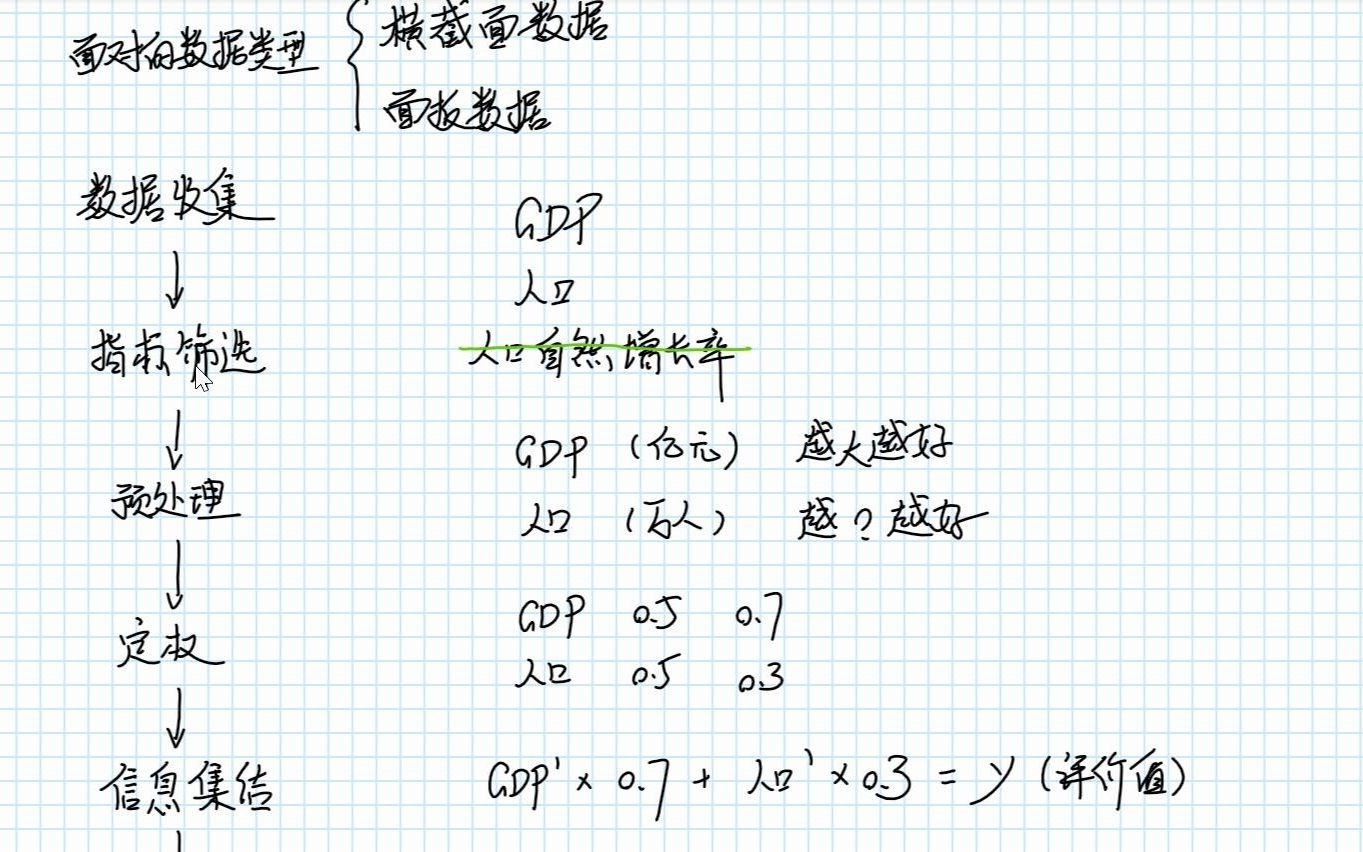 面对的数据类型
横截面数据
面板数据
数据收集
GDP
人口
↓
指标筛选
人口自然增长率
↓
GDP (亿元) 越大越好
预处理
人口 (万人) 越?越好
↓
GDP 0.5 0.7
定权
人口 0.5 0.3
↓
信息集结
GDP' × 0.7 + 人口' × 0.3 = y (评价值)